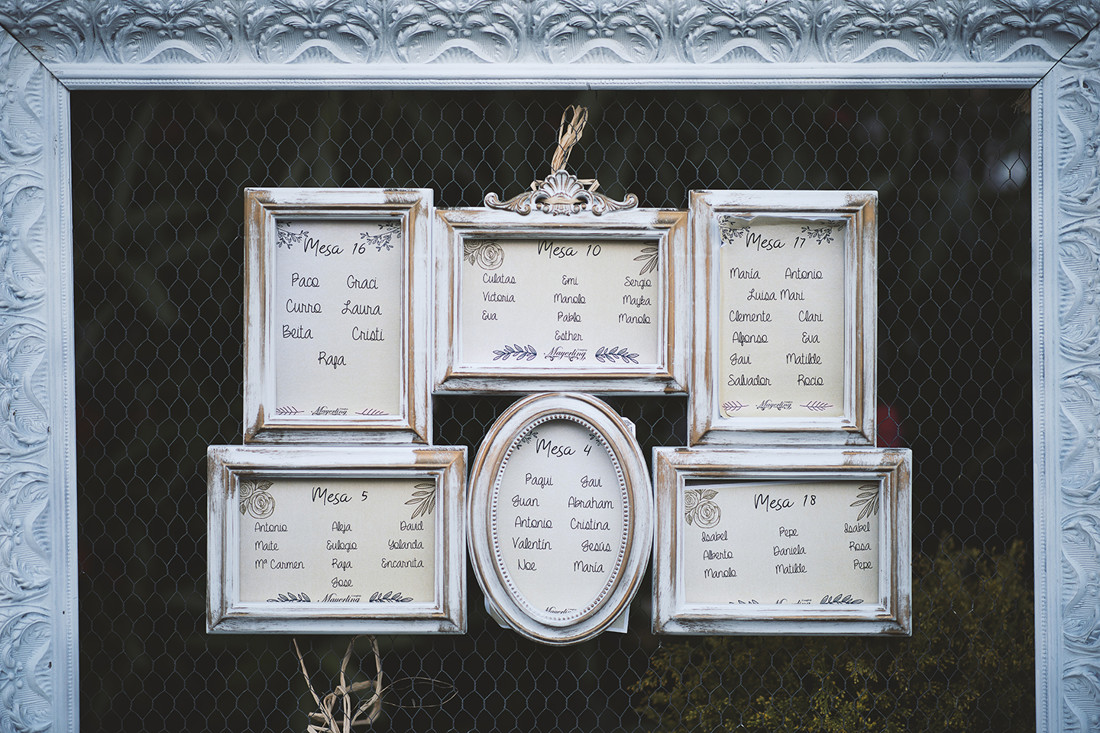 Mesa 16
Paco Graci
Curro Laura
Beita Cristi
Rafa
Mayerling
Mesa 10
Culatas Emi Sergio
Victoria Manolo Mayka
Eva Pablo Manolo
Esther
Mayerling
Mesa 17
María Antonio
Luisa Mari
Clemente Clari
Alfonso Eva
Javi Matilde
Salvador Rocio
Mayerling
Mesa 5
Antonio Aleja David
Maite Eulogio Yolanda
Mª Carmen Rafa Encarnita
Jose
Mayerling
Mesa 4
Paqui Javi
Juan Abraham
Antonio Cristina
Valentín Jesús
Noe María
Mesa 18
Isabel Pepe Isabel
Alberto Daniela Rosa
Manolo Matilde Pepe